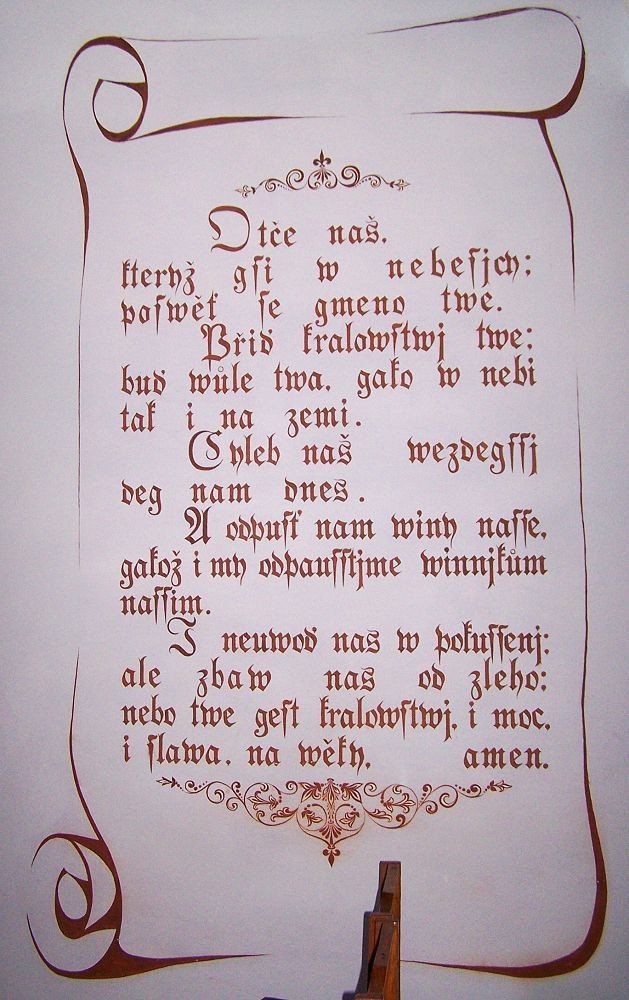 Otče naš.
kteryž gsi w nebesjch:
poswěť se gmeno twe.
Přiď kralowstwj twe:
buď wůle twa. gako w nebi
tak i na zemi.
Chleb naš wezdegssj
deg nam dnes.
A odpusť nam winy nasse.
gakož i my odpausstjme winnjkům
nassim.
I neuwoď nas w pokussenj:
ale zbaw nas od zleho:
nebo twe gest kralowstwj. i moc.
i slawa. na wěky. amen.